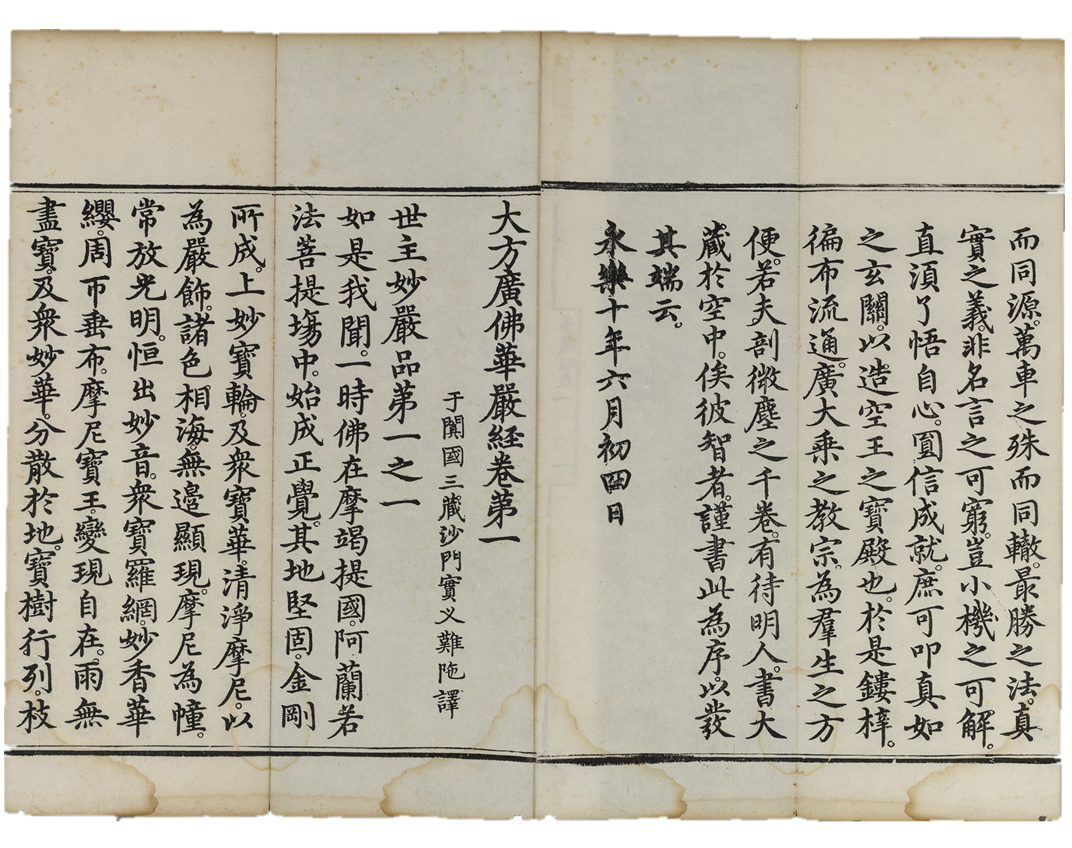 而同源。萬車之殊而同轍。最勝之法。真
實之義。非名言之可窮。豈小機之可解。
直須了悟自心。圓信成就。庶可叩真如
之玄關。以造空王之寶殿也。於是鏤梓。
徧布流通。廣大乘之教宗。為羣生之方
便。若夫剖微塵之千卷。有待明人。書大
藏於空中。俟彼智者。謹書此為序。以發
其端云。
永樂十年六月初四日
大方廣佛華嚴經卷第一
于闐國三藏沙門實叉難陁譯
世主妙嚴品第一之一
如是我聞。一時佛在摩竭提國。阿蘭若
法菩提場中。始成正覺。其地堅固。金剛
所成。上妙寶輪。及衆寶華。清淨摩尼。以
為嚴飾。諸色相海。無邊顯現。摩尼為幢。
常放光明。恒出妙音。衆寶羅網。妙香華
纓。周帀垂布。摩尼寶王。變現自在。雨無
盡寶。及衆妙華。分散於地。寶樹行列。枝